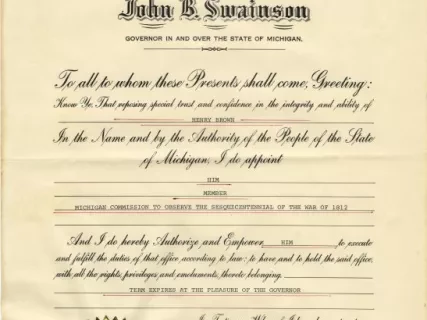 John B. Swainson
GOVERNOR IN AND OVER THE STATE OF MICHIGAN.
To all to whom these Presents shall come, Greeting:
Know Ye, That reposing special trust and confidence in the integrity and ability of
HENRY BROWN
In the Name and by the Authority of the People of the State
of Michigan, I do appoint
HIM
MEMBER
MICHIGAN COMMISSION TO OBSERVE THE SESQUICENTENNIAL OF THE WAR OF 1812
And I do hereby Authorize and Empower HIM to execute
and fulfill the duties of that office according to law: to have and to hold the said office,
with all the rights, privileges and emoluments, thereto belonging
TERM EXPIRES AT THE PLEASURE OF THE GOVERNOR